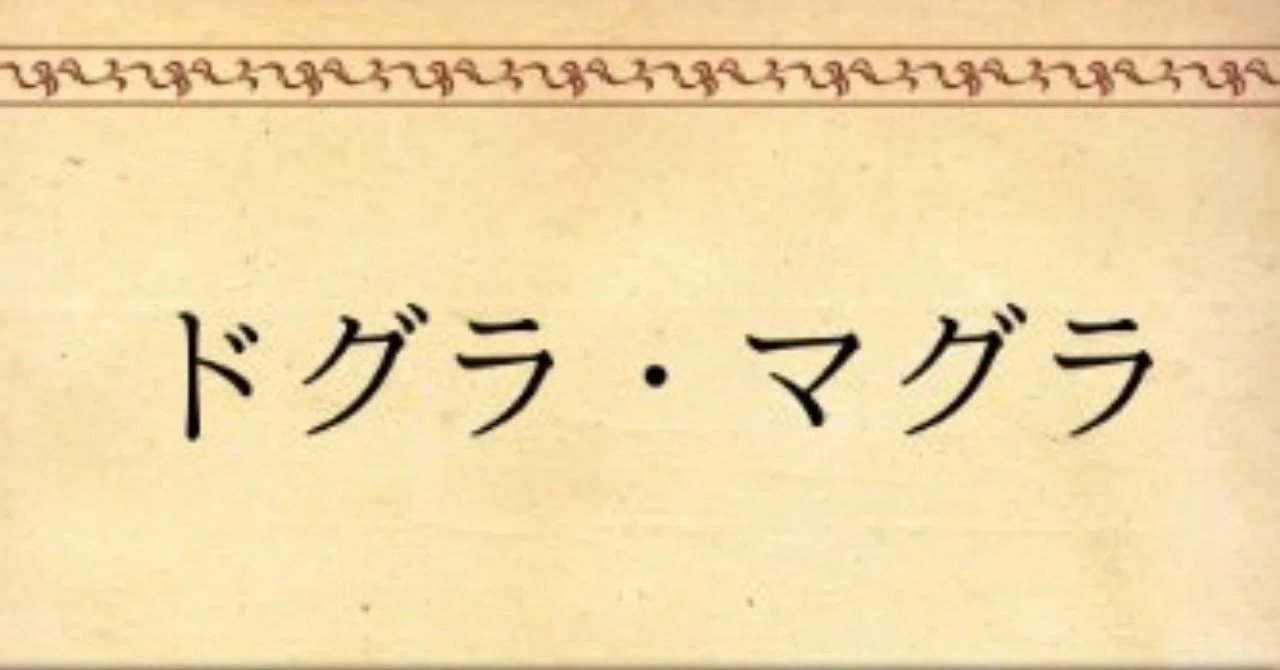 ドグラ・マグラ